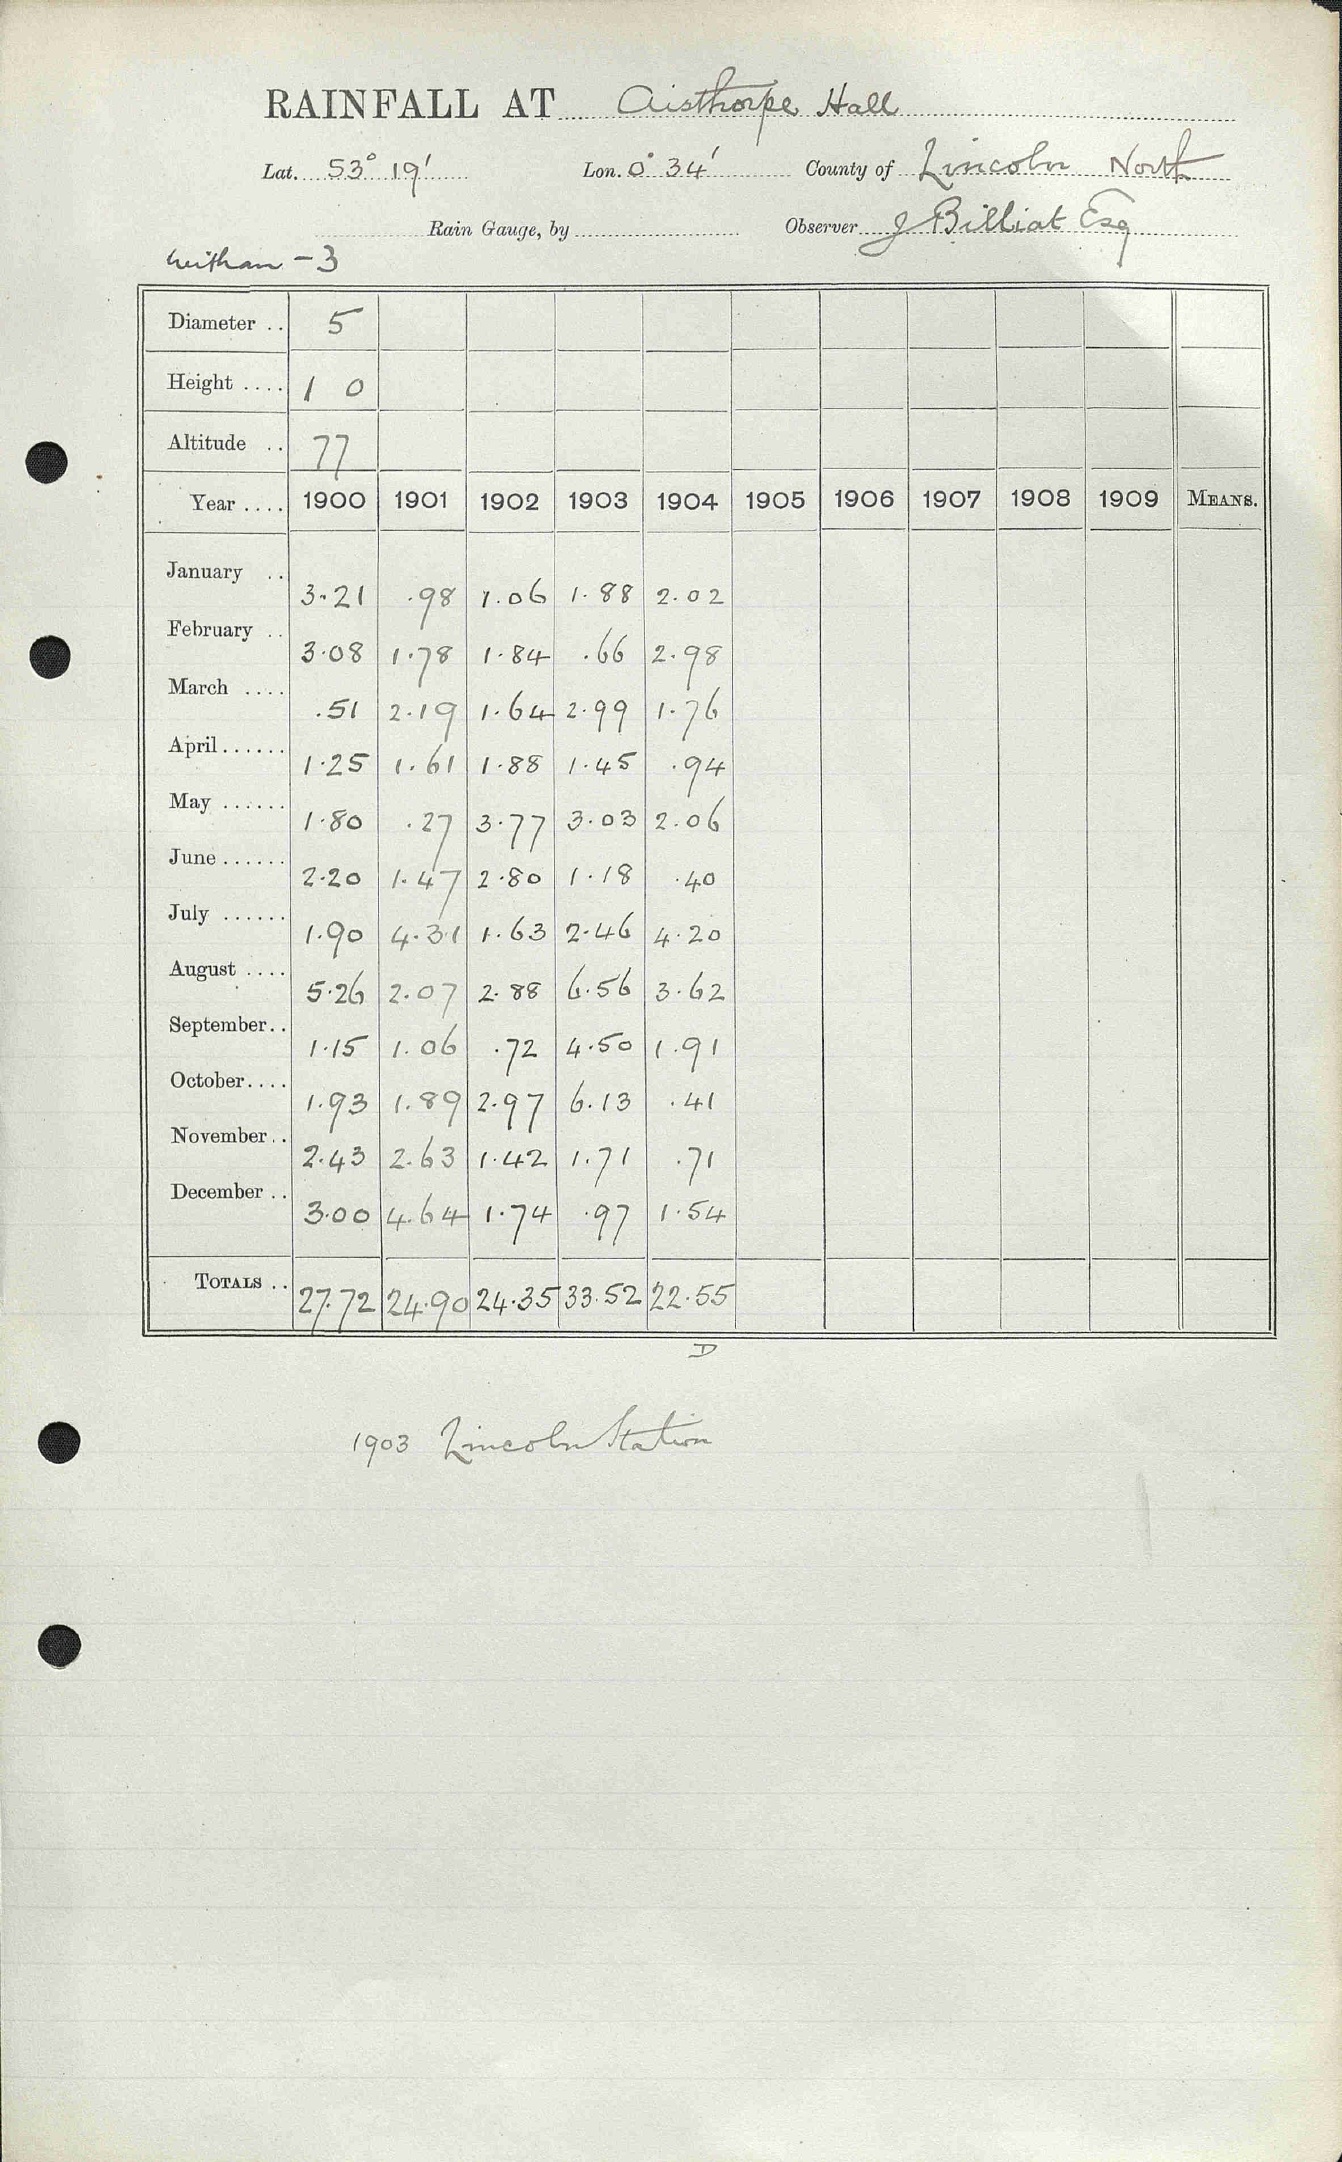 RAINFALL AT Aisthorpe Hall
Lat. 53° 19' Lon. 0° 34' County of Lincoln North
Rain Gauge, by Observer J Billiat Esq
Witham - 3
Diameter .. 5
Height .... 1 0
Altitude .. 77
Year .... 1900 1901 1902 1903 1904 1905 1906 1907 1908 1909 MEANS.
January .. 3.21 .98 1.06 1.88 2.02
February .. 3.08 1.78 1.84 .66 2.98
March .... .51 2.19 1.64 2.99 1.76
April ...... 1.25 1.61 1.88 1.45 .94
May ...... 1.80 .27 3.77 3.03 2.06
June ...... 2.20 1.47 2.80 1.18 .40
July ...... 1.90 4.31 1.63 2.46 4.20
August .... 5.26 2.07 2.88 6.56 3.62
September.. 1.15 1.06 .72 4.50 1.91
October.... 1.93 1.89 2.97 6.13 .41
November.. 2.43 2.63 1.42 1.71 .71
December .. 3.00 4.64 1.74 .97 1.54
TOTALS .. 27.72 24.90 24.35 33.52 22.55
D
1903 Lincoln Station